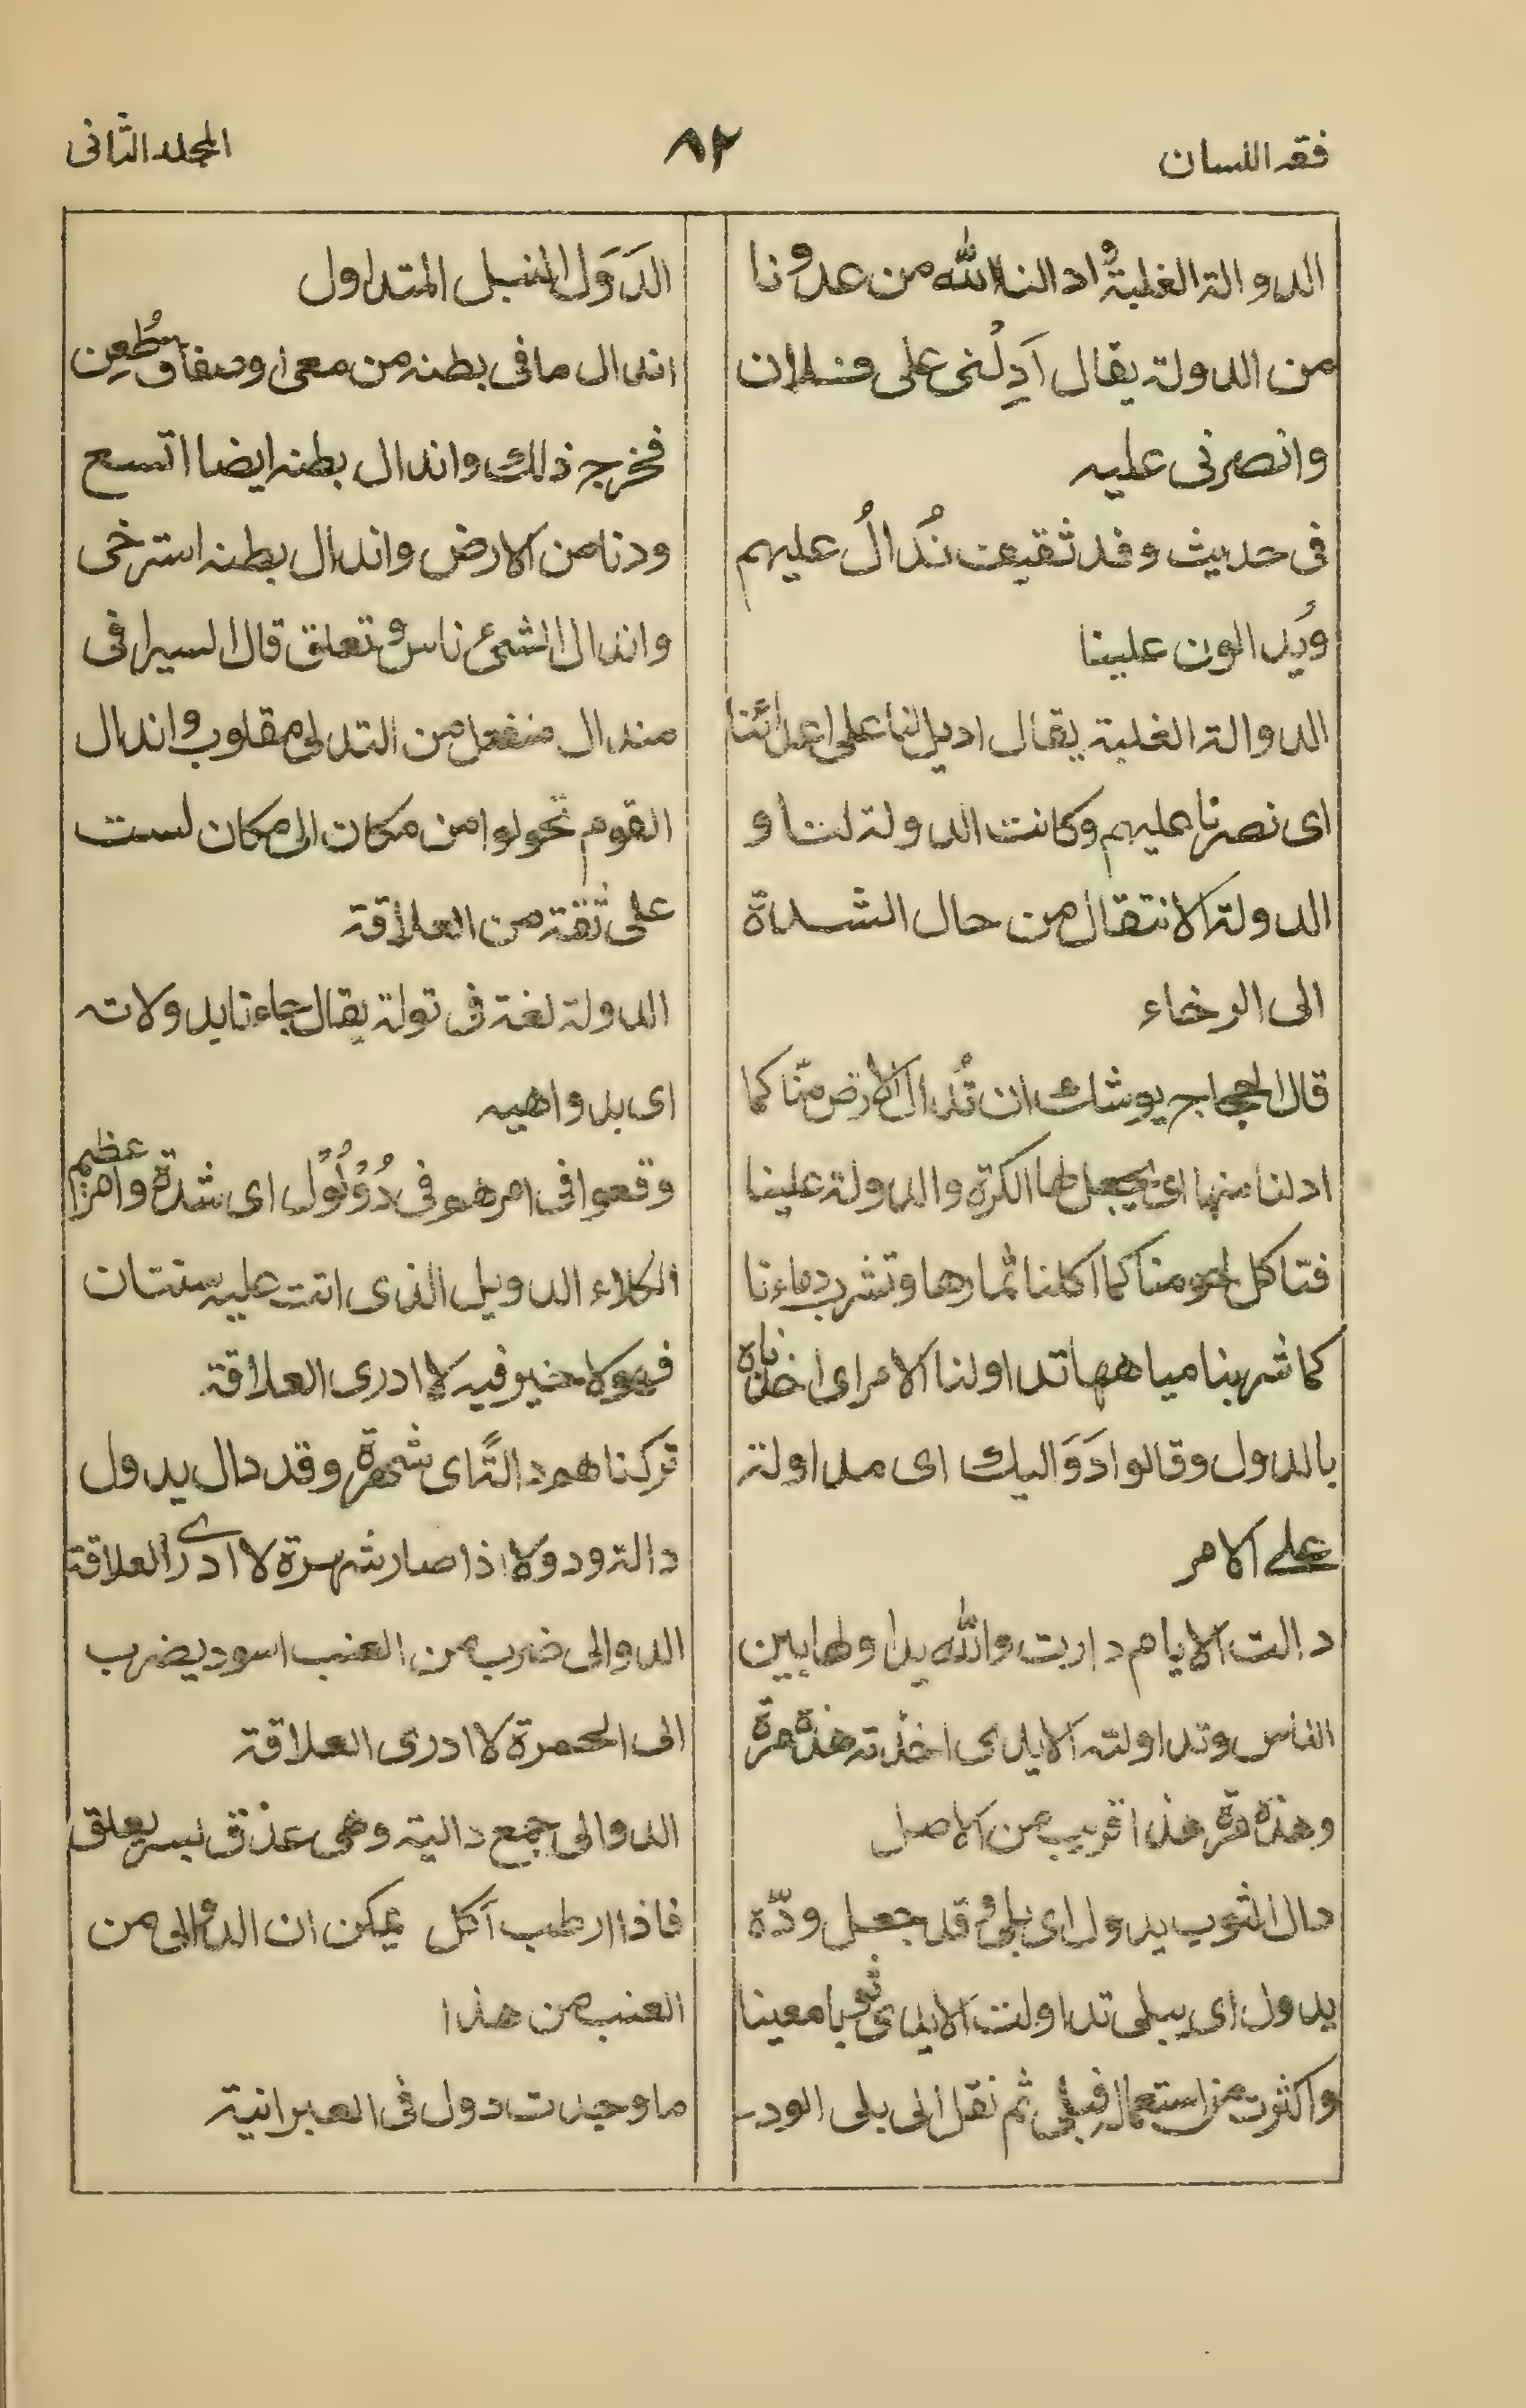 فقه اللسان
٨٢
المجلد الثانی
الدوالة الغلبة و ادالنا الله من عدونا
من الدولة یقال اَدِلْنی علی فلان
وانصرنی علیه
فی حدیث وفد ثقیف نُدالُ علیهم
ویُدالون علینا
الدوالة الغلبة یقال ادیل لنا علی اعدائنا
ای نصرنا علیهم وکانت الدولة لنا و
الدولة الانتقال من حال الشدة
الی الرخاء
قال الحجاج یوشک ان تُدال الارض منّا کما
ادلنا منها ای یجعل لها الکرة والدولة علینا
فتاکل لحومنا کما اکلنا ثمارها وتشرب دماءنا
کما شربنا میاهها تداولنا الامر ای اخذناه
بالدول وقالوا دَوَالیک ای مداولة
علی الامر
دالت الایام دارت والله یداولها بین
الناس وتداولته الایدی اخذته هذه مرة
وهذه مرة هذا قریب من الاصل
دال الثوب یدول ای بلی و قد جعل ودّه
یدول ای یبلی تداولت الایدی ثوبا معینا
واکثرت من استعماله فبلی ثم نقل الی بلی الود
الدَوَل النبل المتداول
اندال ما فی بطنه من معی او صفاق طُعِن
فخرج ذلک واندال بطنه ایضا اتسع
ودنا من الارض واندال بطنه استرخی
واندال الشیء ناس و تعلق قال السیرافی
مندال منفعل من التدلی مقلوب و اندال
القوم تحولوا من مکان الی مکان لست
علی ثقة من العلاقة
الدولة لغة فی تولة یقال جاءنا بدولاته
ای بدواهیه
وقعوا فی امرهم فی دُوْلُوْل ای شدة و امر عظیم
الکلاء الدویل الذی اتت علیه سنتان
فهو لا خیر فیه لا ادری العلاقة
ترکناهم دالةً ای شهرة وقد دال یدول
دالة ودولا اذا صار شهرة لا ادری العلاقة
الدوالی ضرب من العنب اسود یضرب
الی الحمرة لا ادری العلاقة
الدوالی جمع دالیة وهی عذق بسر یعلق
فاذا ارطب اکل یمکن ان الدوالی من
العنب من هذا
ما وجدت دول فی العبرانیة